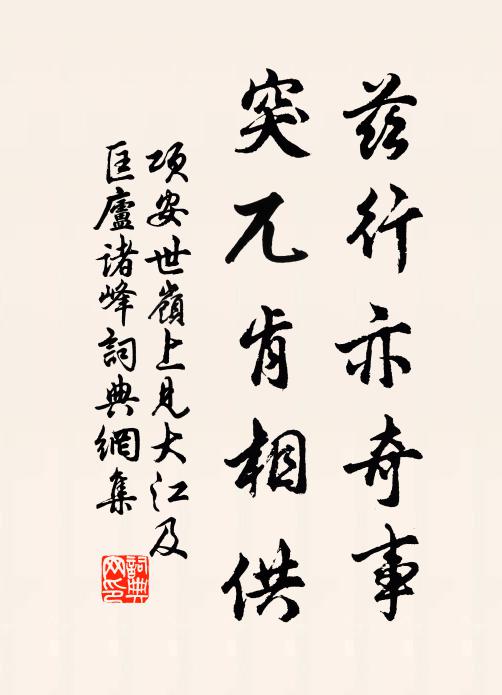 茲行亦奇事
突兀肯相供
項安世嶺上見大江及
匡廬諸峰詞典網集
詞典網印